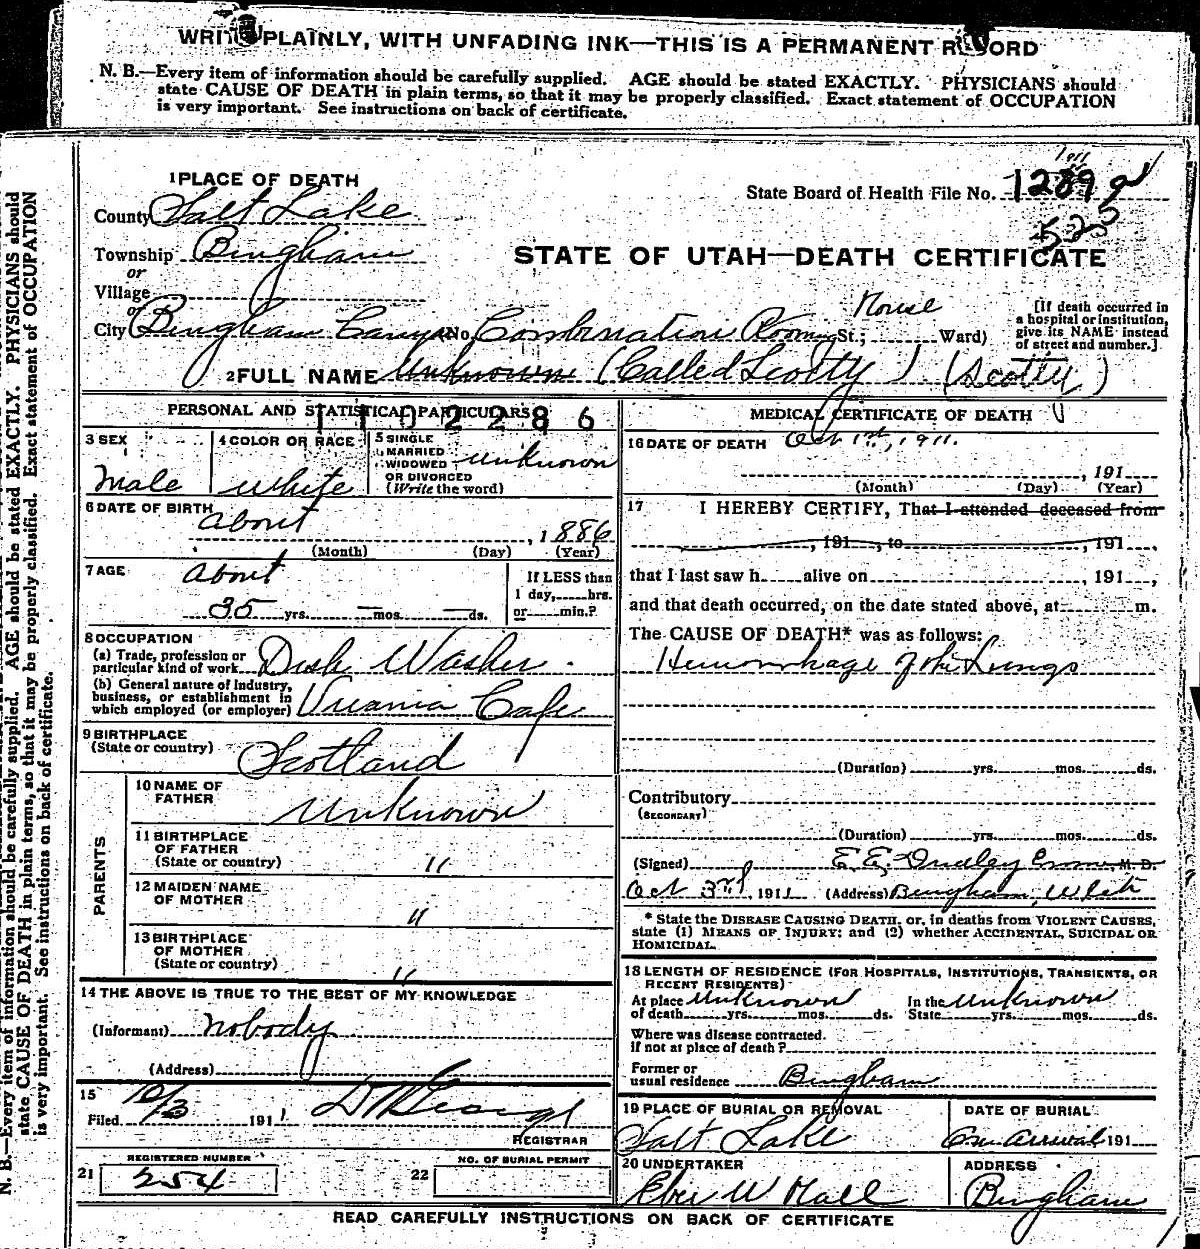 WRITE PLAINLY, WITH UNFADING INK—THIS IS A PERMANENT RECORD
N. B.—Every item of information should be carefully supplied. AGE should be stated EXACTLY. PHYSICIANS should
state CAUSE OF DEATH in plain terms, so that it may be properly classified. Exact statement of OCCUPATION
is very important. See instructions on back of certificate.
1 PLACE OF DEATH
County Salt Lake
Township Bingham
or
Village
or
City Bingham Canyon No. Combination Rooming House St.; Ward)
[If death occurred in
a hospital or institution,
give its NAME instead
of street and number.]
State Board of Health File No. 1289
1911
525
STATE OF UTAH—DEATH CERTIFICATE
2 FULL NAME Unknown (Called Scotty) (Scotty)
PERSONAL AND STATISTICAL PARTICULARS
1102286
3 SEX
Male
4 COLOR OR RACE
White
5 SINGLE
MARRIED
WIDOWED
OR DIVORCED
(Write the word)
unknown
6 DATE OF BIRTH
About
, 1886
(Month) (Day) (Year)
7 AGE
About
35 yrs. — mos. — ds.
If LESS than
1 day, hrs.
or min.?
8 OCCUPATION
(a) Trade, profession or
particular kind of work Dish Washer
(b) General nature of industry,
business, or establishment in
which employed (or employer) Cafe
9 BIRTHPLACE
(State or country) Scotland
PARENTS
10 NAME OF
FATHER Unknown
11 BIRTHPLACE
OF FATHER
(State or country) "
12 MAIDEN NAME
OF MOTHER "
13 BIRTHPLACE
OF MOTHER
(State or country) "
14 THE ABOVE IS TRUE TO THE BEST OF MY KNOWLEDGE
(Informant) Nobody
(Address)
15
Filed 10/3 1911
REGISTRAR
21 REGISTERED NUMBER
254
22 NO. OF BURIAL PERMIT
MEDICAL CERTIFICATE OF DEATH
16 DATE OF DEATH Oct 1st, 1911.
, 191
(Month) (Day) (Year)
17 I HEREBY CERTIFY, That I attended deceased from
, 191 , to , 191 ,
that I last saw h alive on , 191 ,
and that death occurred, on the date stated above, at m.
The CAUSE OF DEATH* was as follows:
Hemorrhage of the Lungs
(Duration) yrs. mos. ds.
Contributory
(SECONDARY)
(Duration) yrs. mos. ds.
(Signed) E. E. Dudley M. D.
Oct 3rd, 1911 (Address) Bingham, Utah
* State the DISEASE CAUSING DEATH, or, in deaths from VIOLENT CAUSES,
state (1) MEANS OF INJURY; and (2) whether ACCIDENTAL, SUICIDAL OR
HOMICIDAL.
18 LENGTH OF RESIDENCE (FOR HOSPITALS, INSTITUTIONS, TRANSIENTS, OR
RECENT RESIDENTS)
At place Unknown
of death yrs. mos. ds.
In the Unknown
State yrs. mos. ds.
Where was disease contracted.
If not at place of death?
Former or
usual residence Bingham
19 PLACE OF BURIAL OR REMOVAL
Salt Lake
DATE OF BURIAL
On Arrival 191
20 UNDERTAKER
Eber W Hall
ADDRESS
Bingham
READ CAREFULLY INSTRUCTIONS ON BACK OF CERTIFICATE
N. B.—Every item of information should be carefully supplied. AGE should be stated EXACTLY. PHYSICIANS should
state CAUSE OF DEATH in plain terms, so that it may be properly classified. Exact statement of OCCUPATION
is very important. See instructions on back of certificate.